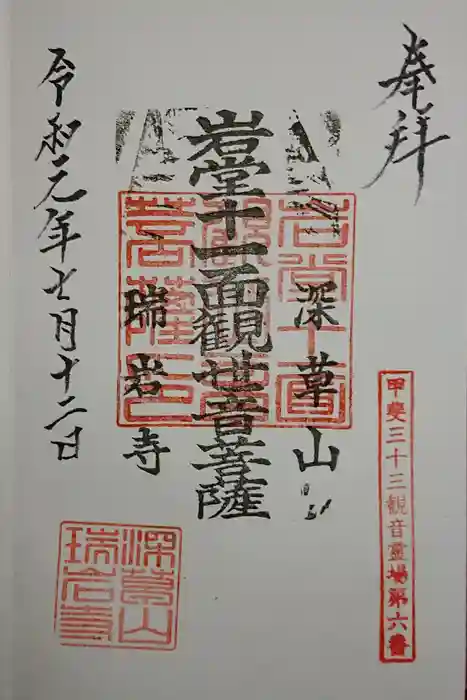 奉拝
甲斐三十三観音霊場第六番
深草山
岩堂十一面観世音菩薩
瑞岩寺
令和元年七月十二日
深草山
瑞岩寺